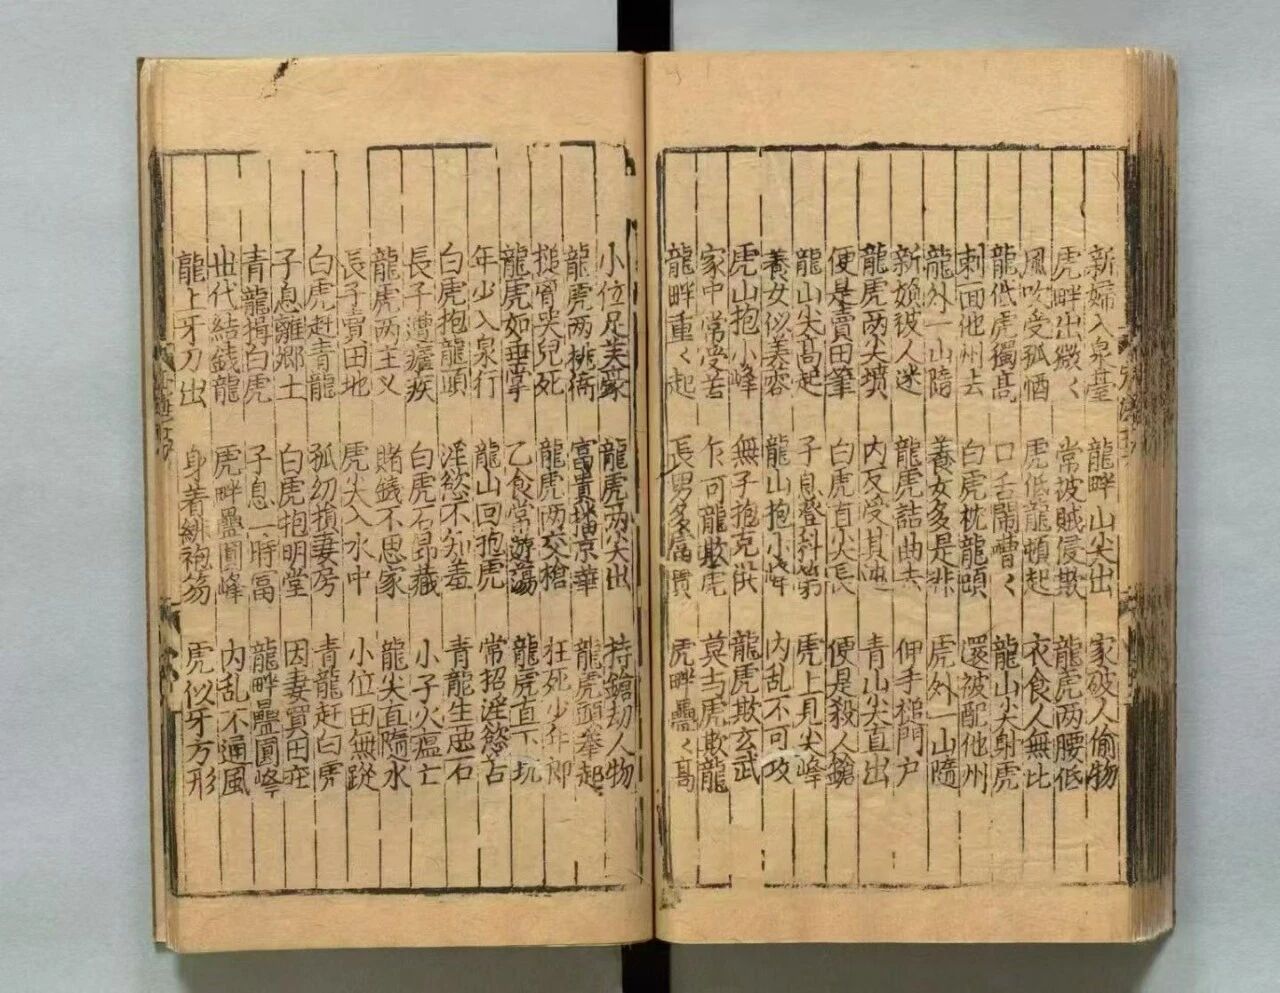 新婦入泉臺 龍畔山尖出 家破人偷物
虎畔出微〻 常被賊侵欺 龍虎两腰低
風吹受孤恓 虎低龍頓起 衣食人無比
龍低虎獨髙 口舌閙嘈〻 龍山尖射虎
刺面他州去 白虎枕龍頭 還被配他州
龍外一山隨 養女多是非 虎外一山隨
新娘被人迷 龍虎詰曲去 伊手槌門户
龍虎两尖墳 内反受其 青山尖直出
便是賣田筆 白虎直尖長 便是殺人鎗
龍山尖髙起 子息登科第 虎上見尖峰
養女似芙蓉 龍山抱小峰 内乱不可攻
虎山抱小峰 無子抱克 龍虎欺玄武
家中常受苦 乍可龍欺虎 莫当虎欺龍
龍畔重〻起 長男多富貴 虎畔疊〻髙
小位足芙家 龍虎两尖出 持鎗劫人物
龍虎两 富貴 京華 龍虎頭拳起
搥胷哭兒死 龍虎两交槍 狂死少年郎
龍虎如垂掌 乞食常遊蕩 龍虎直下坑
年少入泉行 龍山回抱虎 常招淫慾古
白虎抱龍頭 淫慾不知羞 青龍生惡石
長子遭瘧疾 白虎石昂藏 小子火瘟亡
龍虎两主义 賭錢不思家 龍尖直隨水
長子賣田地 虎尖入水中 小位田無蹤
白虎赶青龍 孤幼損妻房 青龍赶白虎
子息離郷土 白虎抱明堂 因妻買田庄
青龍揖白虎 子息一時冨 龍畔疊圓峰
世代結錢龍 虎畔疊圓峰 内乱不通風
龍上牙刀出 身着緋袍笏 虎似牙方形